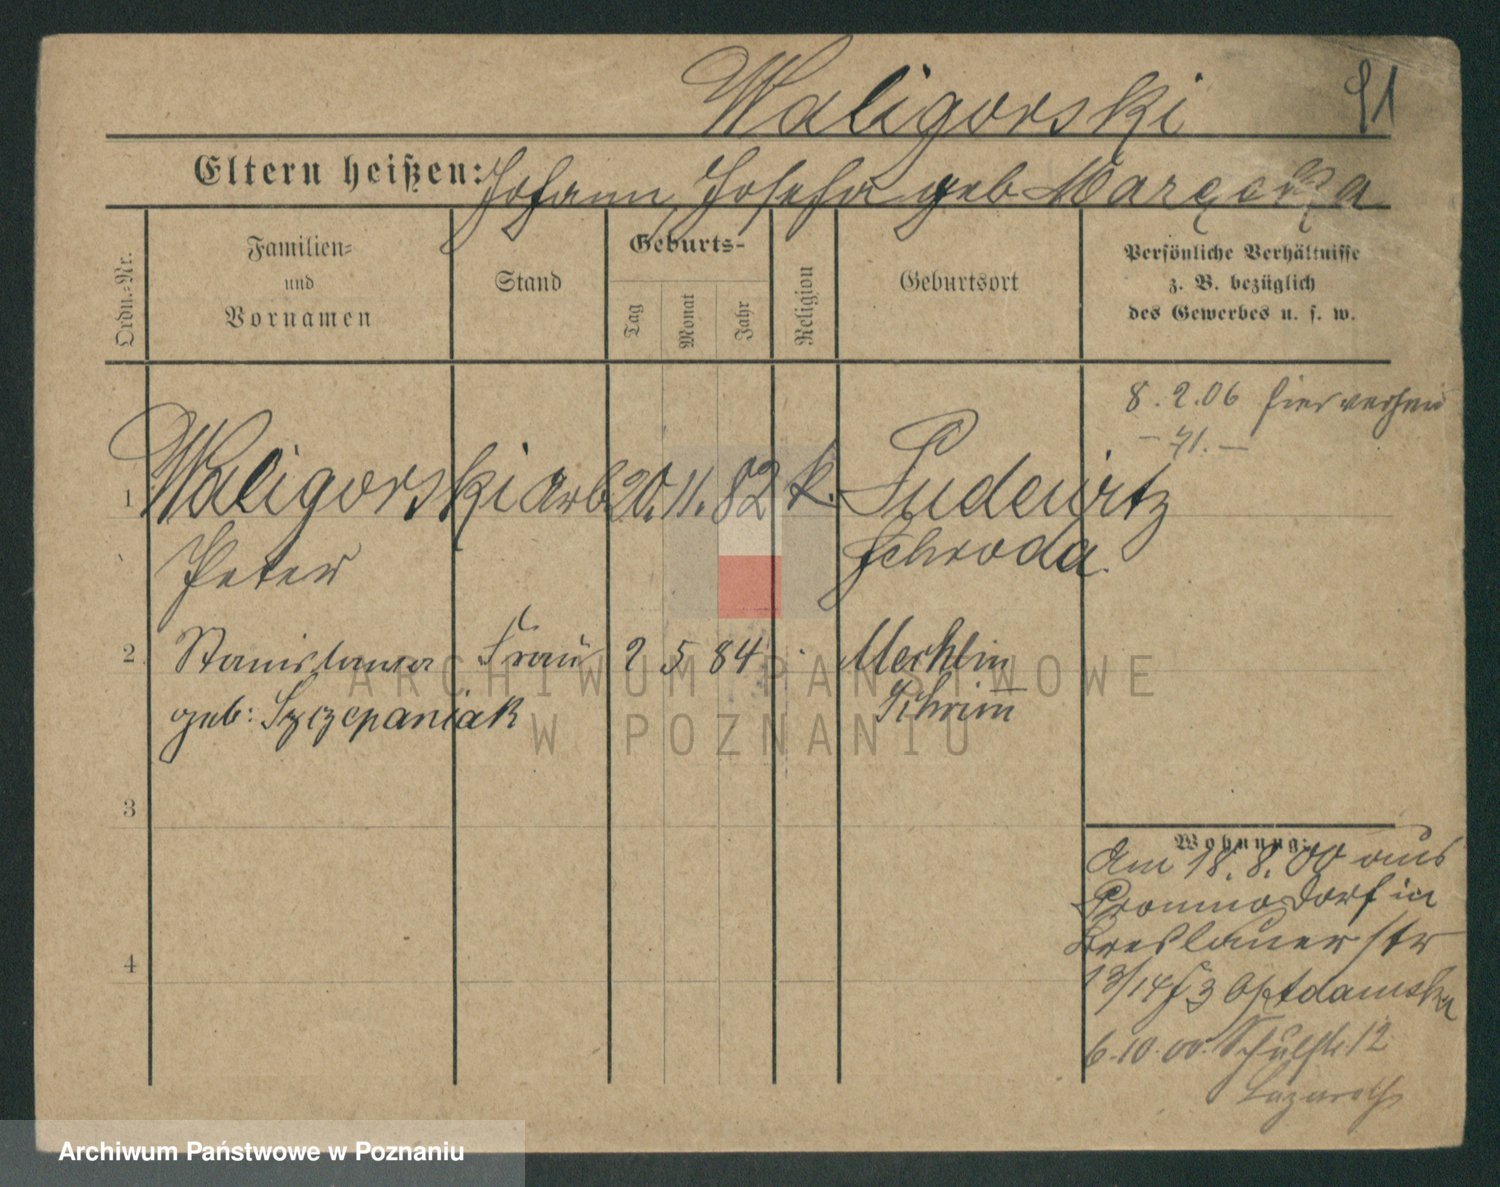 Waligorski 91
Eltern heißen: Johann, Josefa geb
Ordn.-Nr.
Familien-
und
Vornamen
Stand
Geburts-
Tag
Monat
Jahr
Religion
Geburtsort
Persönliche Verhältnisse
z. B. bezüglich
des Gewerbes u. s. w.
8.2.06 hier
1 Waligorski Arb. 20. 11. 82 k. Pudewitz
Peter Schroda.
2 Stanislawa Frau 2 5 84 Mechlin
geb: Szczepaniak Schrimm
3
4
Wohnung:
Am 18.8.00 aus
in
Breslauerstr
13/14
6.10.00. Schulstr. 12
ARCHIWUM PAŃSTWOWE
W POZNANIU
Archiwum Państwowe w Poznaniu